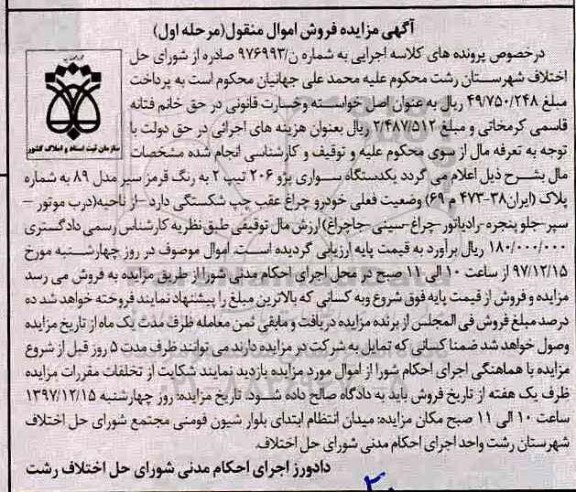 آگهی مزایده فروش اموال منقول(مرحله اول)
درخصوص پرونده های کلاسه اجرایی به شماره ن/۹۷۶۹۹۳ صادره از شورای حل
اختلاف شهرستان رشت محکوم علیه محمد علی جهانیان محکوم است به پرداخت
مبلغ ۴۹/۷۵۰/۲۴۸ ریال به عنوان اصل خواسته وخسارت قانونی در حق خانم فتانه
قاسمی کرمخانی و مبلغ ۲/۴۸۷/۵۱۲ ریال بعنوان هزینه های اجرائی در حق دولت با
توجه به تعرفه مال از سوی محکوم علیه و توقیف و کارشناسی انجام شده مشخصات
سازمان ثبت اسناد و املاک کشور
مال بشرح ذیل اعلام می گردد یکدستگاه سواری پژو ۲۰۶ تیپ ۲ به رنگ قرمز سیر مدل ۸۹ به شماره
پلاک (ایران۳۸-۴۷۳ م ۶۹) وضعیت فعلی خودرو چراغ عقب چپ شکستگی دارد-از ناحیه(درب موتور –
سپر-جلو پنجره-رادیاتور-چراغ-سینی-جاچراغ) ارزش مال توقیفی طبق نظریه کارشناس رسمی دادگستری
۱۸۰/۰۰۰/۰۰۰ ریال برآورد به قیمت پایه ارزیابی گردیده است. اموال موصوف در روز چهارشنبه مورخ
۹۷/۱۲/۱۵ از ساعت ۱۰ الی ۱۱ صبح در محل اجرای احکام مدنی شورا از طریق مزایده به فروش می رسد
مزایده و فروش از قیمت پایه فوق شروع وبه کسانی که بالاترین مبلغ را پیشنهاد نمایند فروخته خواهد شد ده
درصد مبلغ فروش فی المجلس از برنده مزایده دریافت و مابقی ثمن معامله ظرف مدت یک ماه از تاریخ مزایده
وصول خواهد شد ضمنا کسانی که تمایل به شرکت در مزایده دارند می توانند ظرف مدت ۵ روز قبل از شروع
مزایده با هماهنگی اجرای احکام شورا از اموال مورد مزایده بازدید نمایند شکایت از تخلفات مقررات مزایده
ظرف یک هفته از تاریخ فروش باید به دادگاه صالح داده شود. تاریخ مزایده: روز چهارشنبه ۱۳۹۷/۱۲/۱۵
ساعت ۱۰ الی ۱۱ صبح مکان مزایده: میدان انتظام ابتدای بلوار شیون فومنی مجتمع شورای حل اختلاف
شهرستان رشت واحد اجرای احکام مدنی شورای حل اختلاف.
دادورز اجرای احکام مدنی شورای حل اختلاف رشت